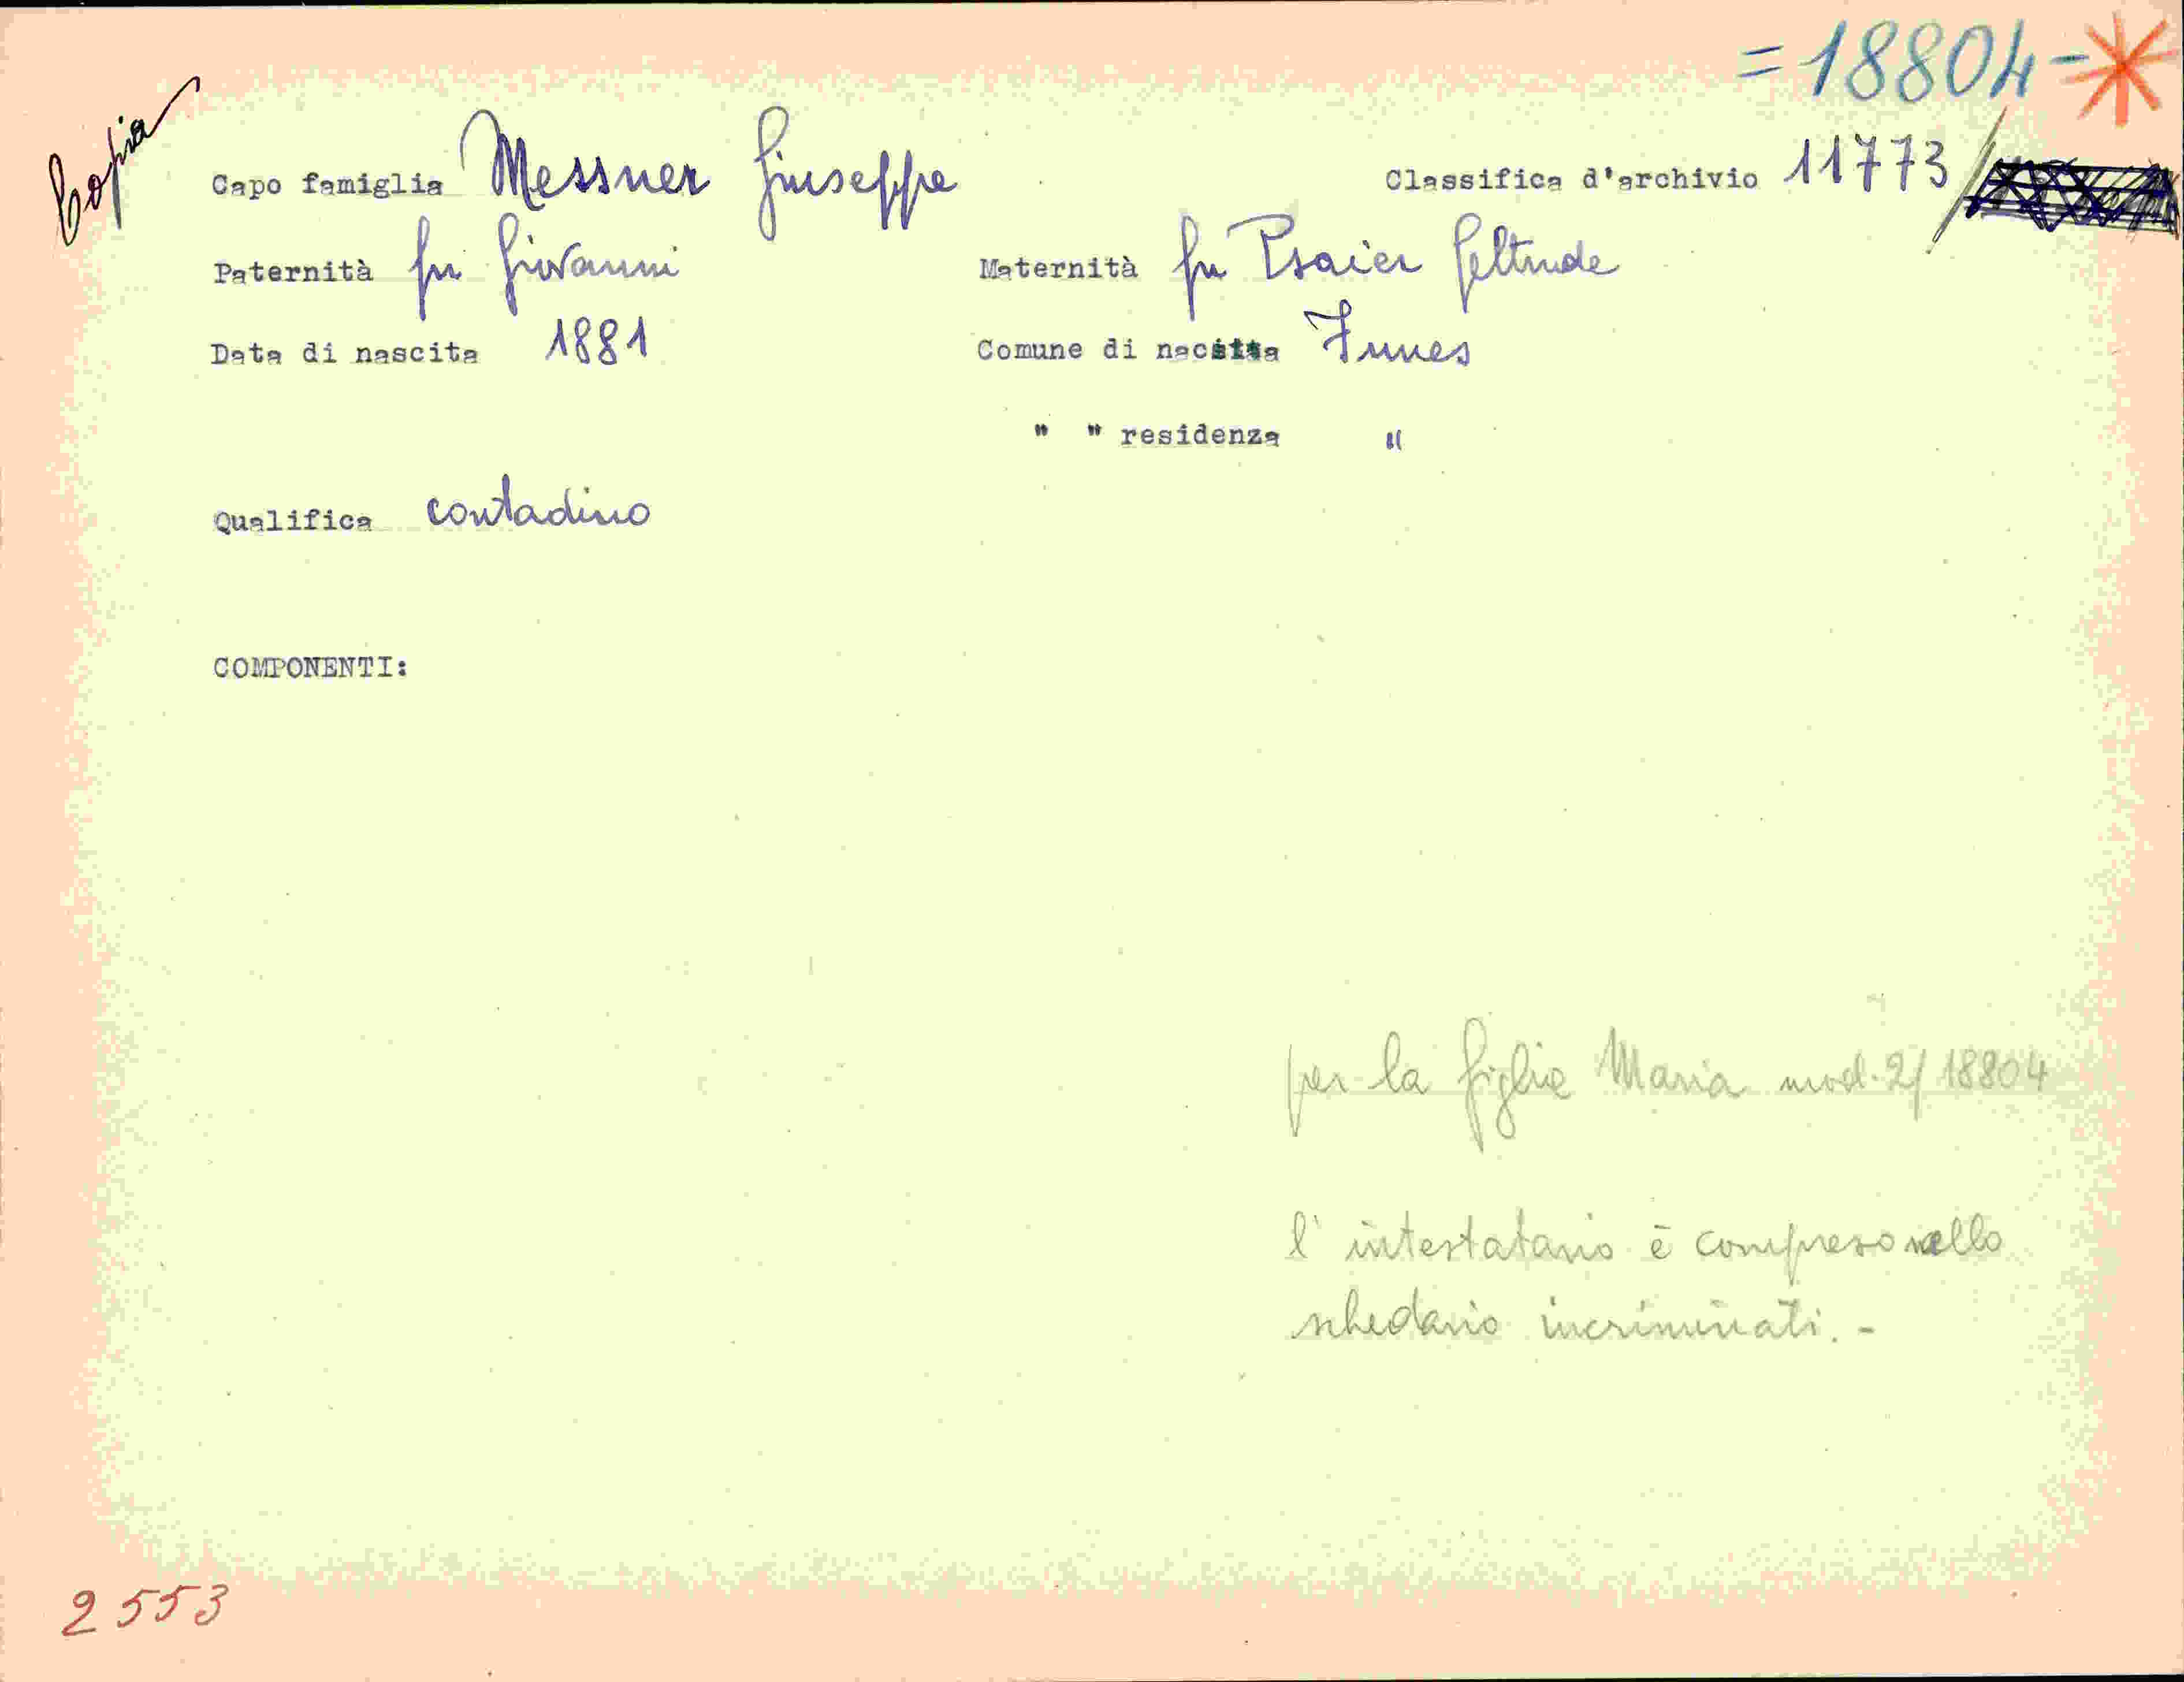 =18804-
Copia
Capo famiglia Messner Giuseppe
Classifica d'archivio 11773/
Paternità fu Giovanni
Maternità fu Psaier Geltrude
Data di nascita 1881
Comune di nascita Funes
" " residenza "
Qualifica contadino
COMPONENTI:
per la figlia Maria mod. 2/18804
l'intestatario è compreso nello
schedario incriminati.-
2553